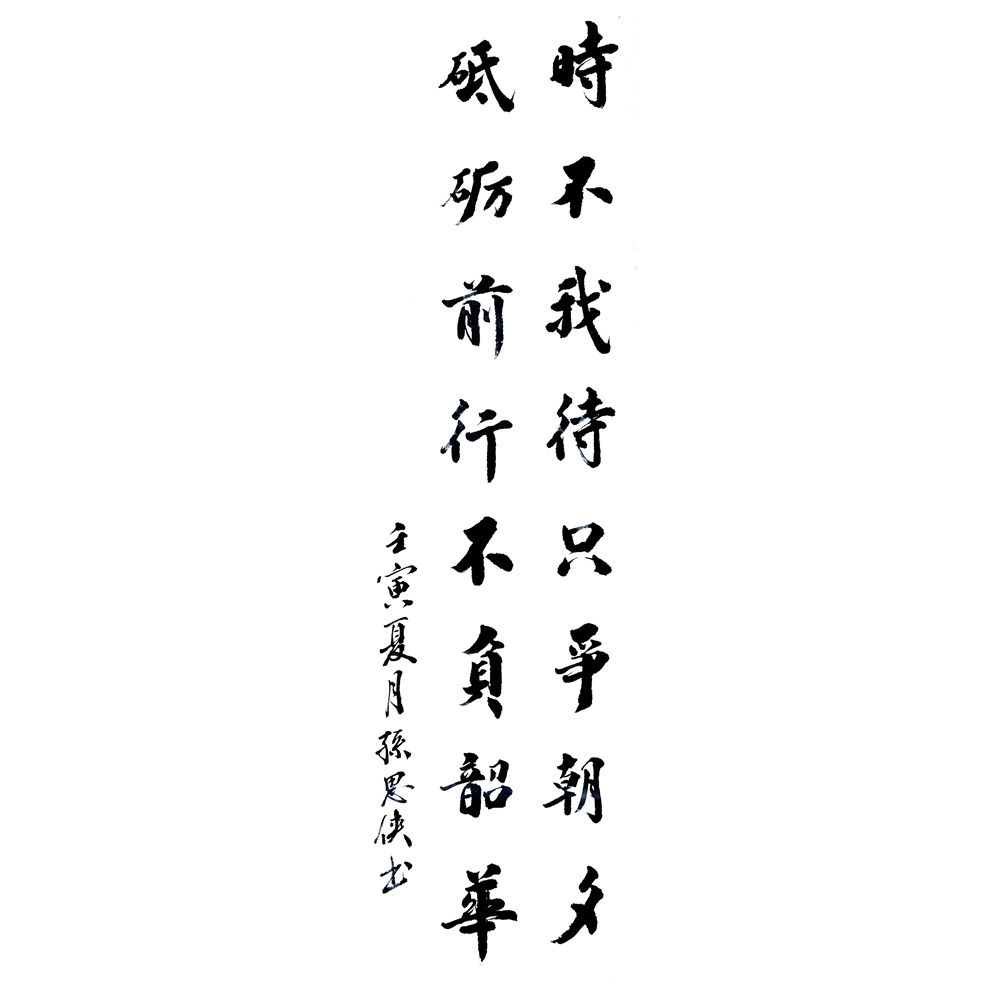 時不我待只爭朝夕
砥砺前行不負韶華
壬寅夏月孫思俠书